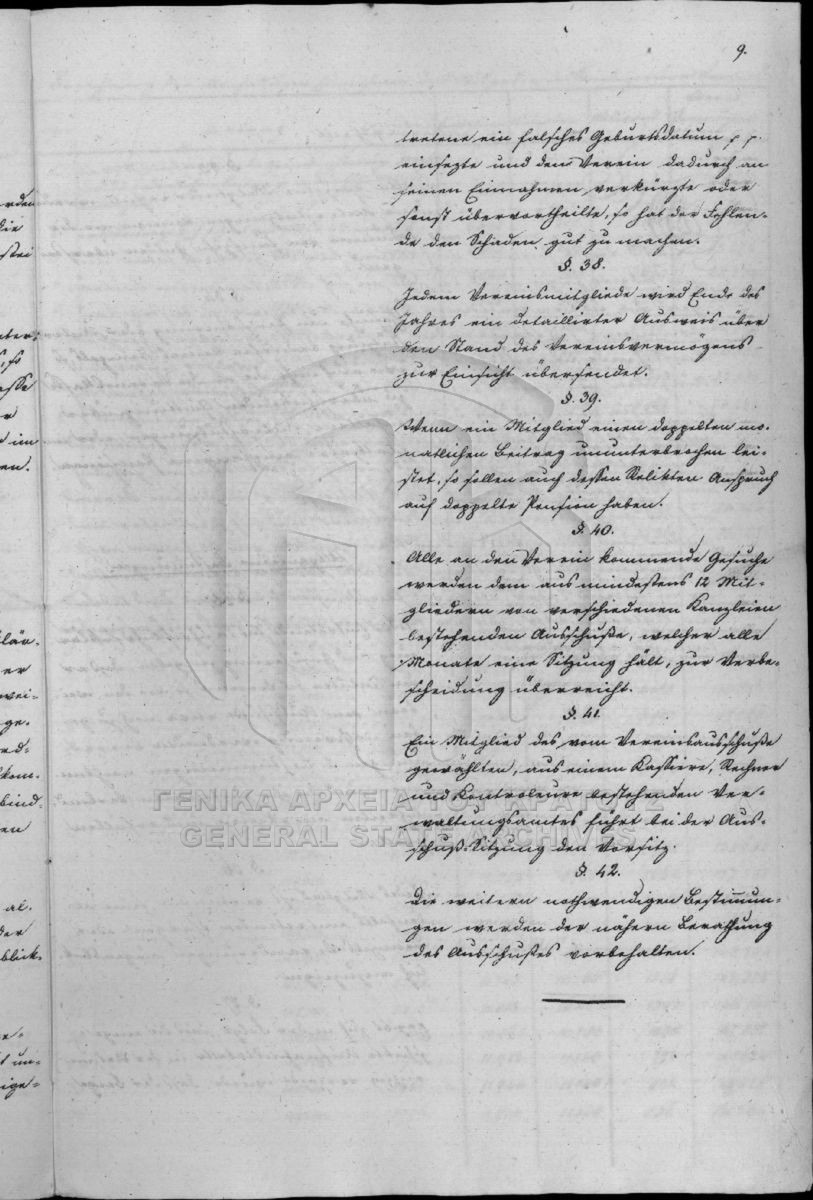 9.
tretene ein falsches Geburtsdatum p. p.
einsezte und dem Verein dadurch an
seinen Einnahmen verkürzte oder
sonst übervortheilte, so hat der Fehlen-
de den Schaden gut zu machen.
§. 38.
Jedem Vereinsmitgliede wird Ende des
Jahres ein detaillirter Ausweis über
den Stand des Vereinsvermögens
zur Einsicht übersendet.
§. 39.
Wenn ein Mitglied einen doppelten mo-
natlichen Beitrag ununterbrochen lei-
stet, so sollen auch dessen Relikten Anspruch
auf doppelte Pension haben.
§. 40.
Alle an den Verein kommende Gesuche
werden dem aus mindestens 12 Mit-
gliedern von verschiedenen Kanzleien
bestehenden Ausschuße, welcher alle
Monate eine Sitzung hält, zur Verbe-
scheidung überreicht.
§. 41.
Ein Mitglied des vom Vereinsausschuße
gewählten, aus einem Kassiere, Rechner
und Kontroleure bestehenden Ver-
waltungsamtes führt bei der Aus-
schuß-Sitzung den Vorsitz.
§. 42.
Die weitern nothwendigen Bestimun-
gen werden der nähern Berathung
des Ausschußes vorbehalten.
ΓΕΝΙΚΑ ΑΡΧΕΙΑ ΤΟΥ ΚΡΑΤΟΥΣ
GENERAL STATE ARCHIVES